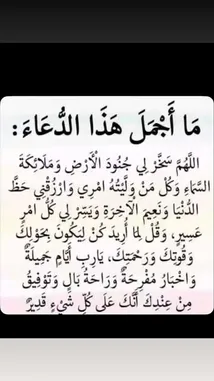 مَا أَجْمَلَ هَذَا الدُّعَاءَ:
اللَّهُمَّ سَخِّرْ لِي جُنُودَ الْأَرْضِ وَمَلَائِكَةَ
السَّمَاءِ وَكُلَّ مَنْ وَلَّيْتَهُ امْرِي وَارْزُقْنِي حَظَّ
الدُّنْيَا وَنَعِيمَ الْآخِرَةِ وَيَسِّرْ لِي كُلَّ امْرٍ
عَسِيرٍ، وَقُلْ لِمَا أُرِيدُ كُنْ لِيَكُونَ بِحَوْلِكَ
وَقُوَّتِكَ وَرَحْمَتِكَ، يَارِبِ أَيَّامٍ جَمِيلَةً
وَاخْبَارٌ مُفْرِحَةٌ وَرَاحَةُ بَالٍ وَتَوْفِيقٌ
مِنْ عِنْدِكَ أَنَّكَ عَلَى كُلِّ شَيْءٍ قَدِيرٌ